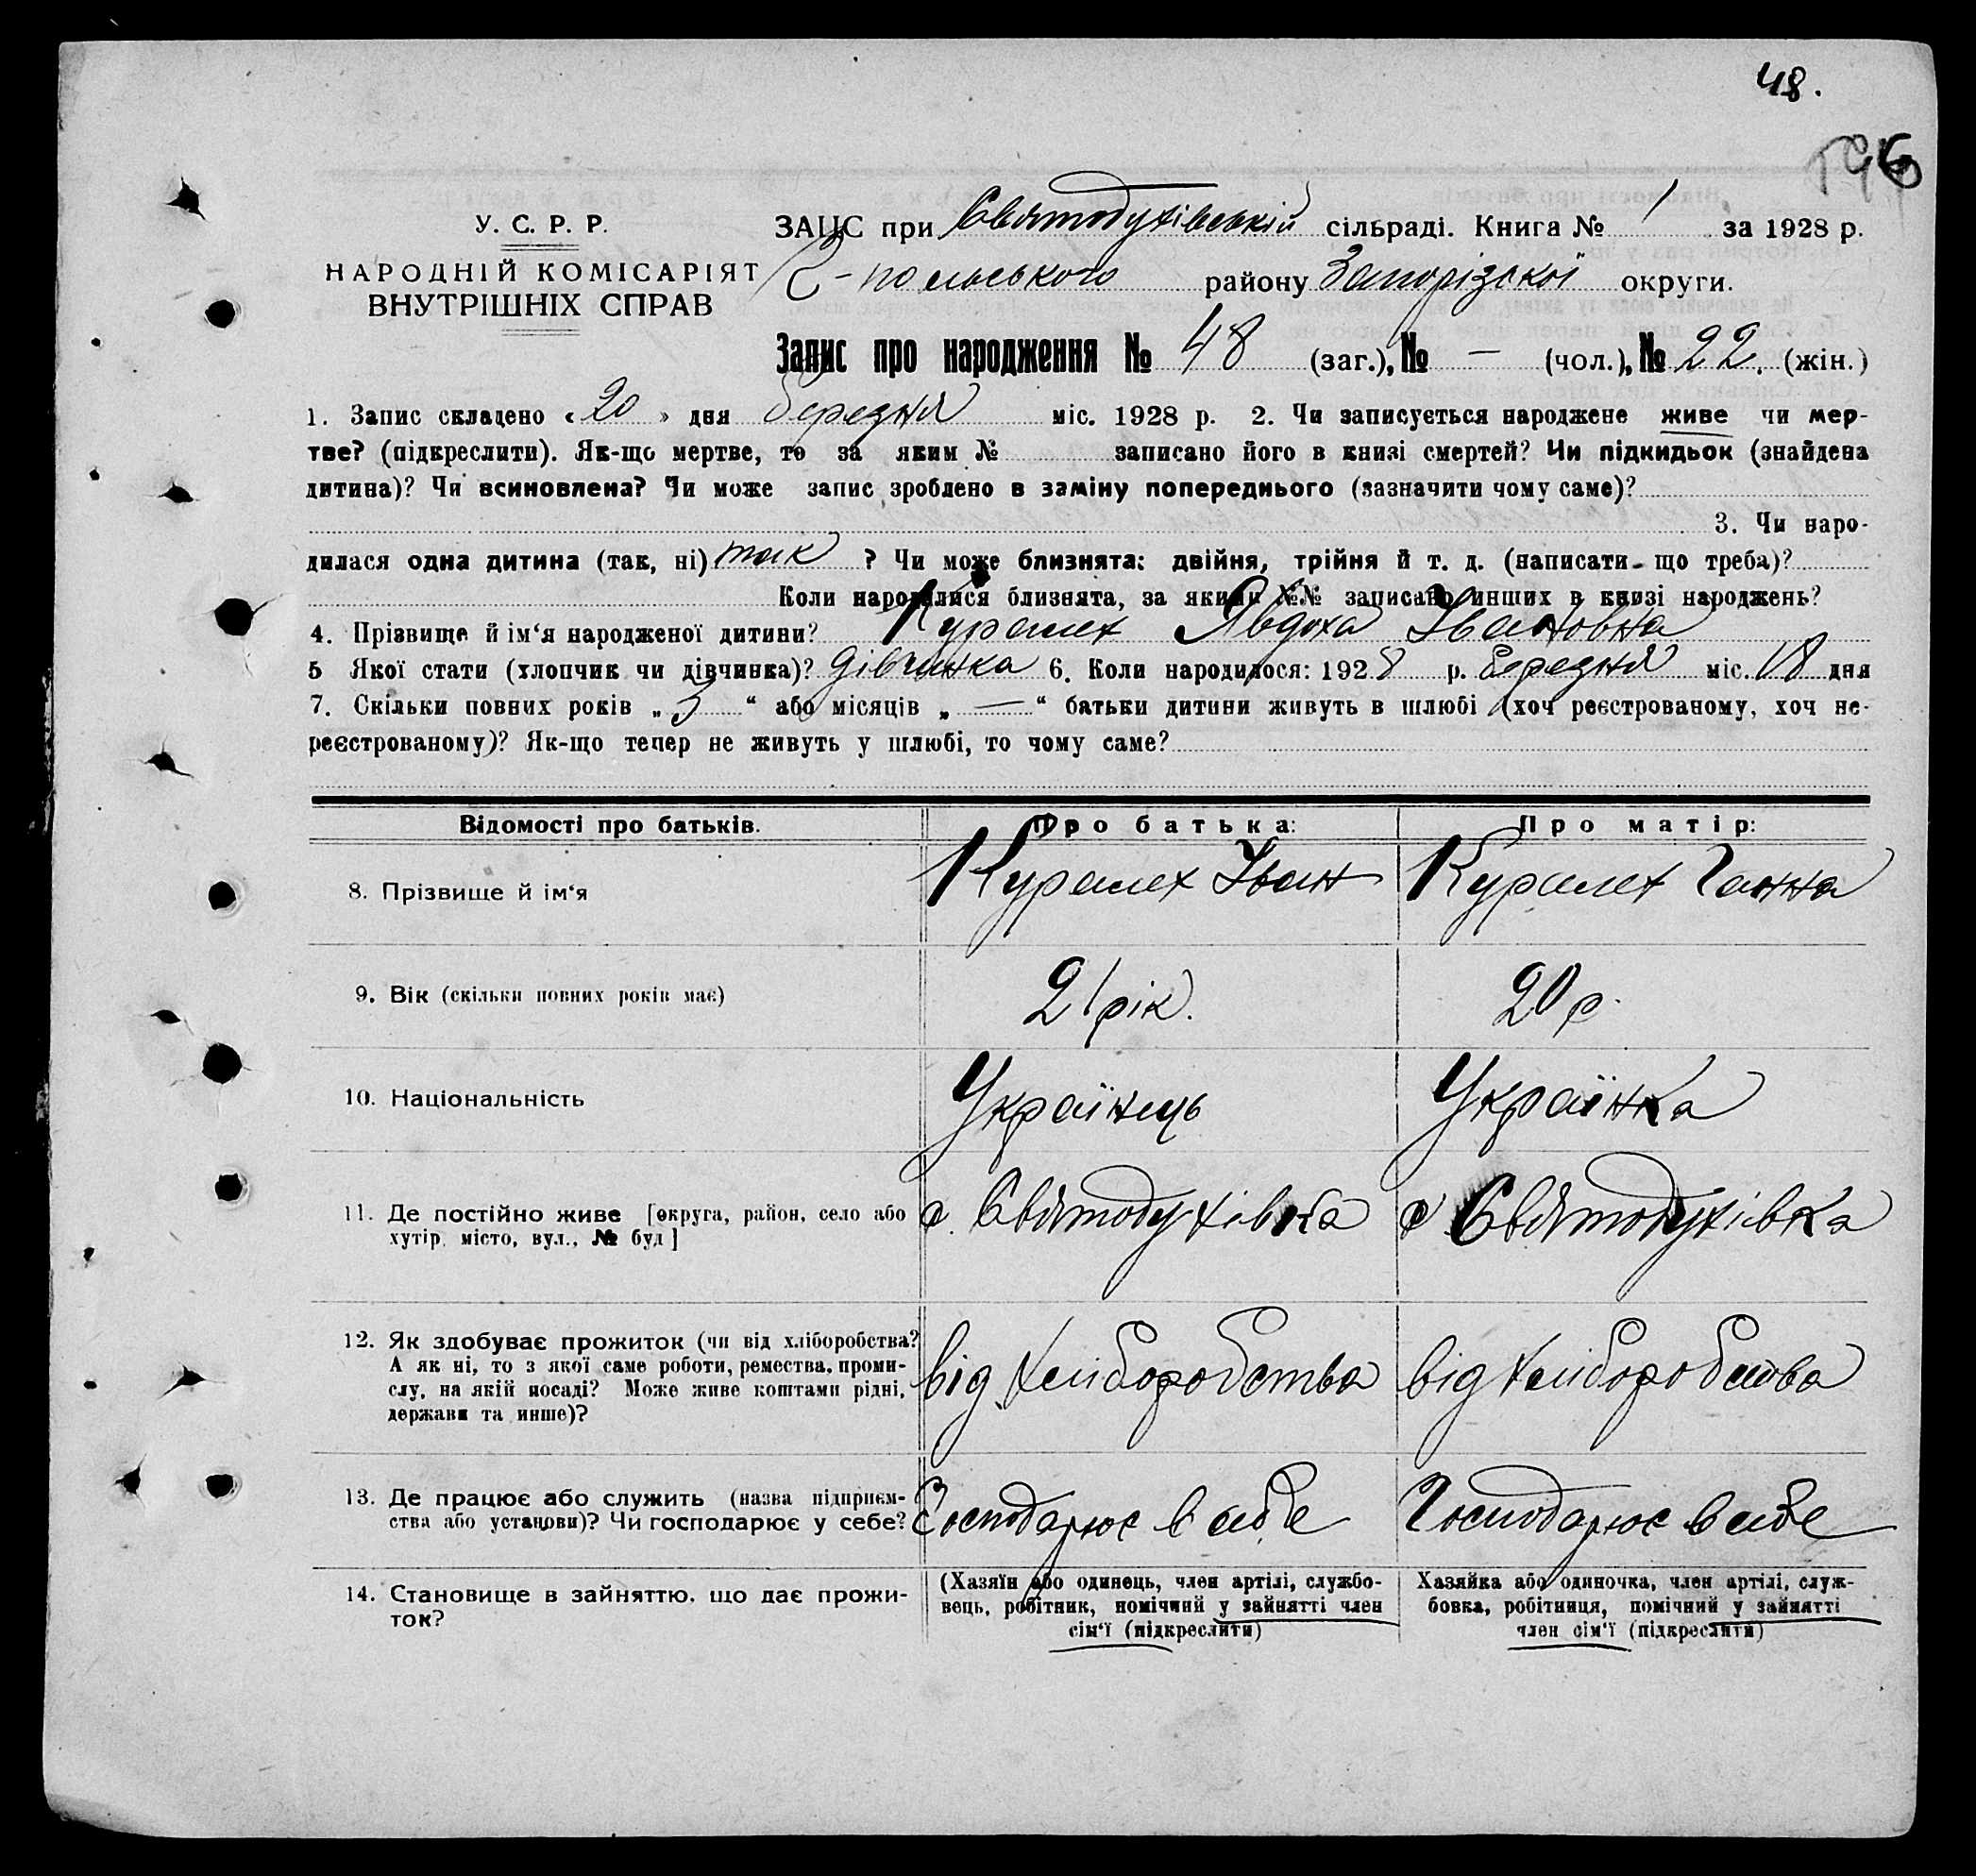 48.
196
У. С. Р. Р.
НАРОДНІЙ КОМІСАРІЯТ
ВНУТРІШНІХ СПРАВ
ЗАЦС при Святодухівській сільраді. Книга № 1 за 1928 р.
С-польського району Запорізскої округи.
Запис про народження № 48 (заг.), № — (чол.), № 22. (жін.)
1. Запис складено « 20 » дня березня міс. 1928 р. 2. Чи записується народжене живе чи мер-
тве? (підкреслити). Як-що мертве, то за яким № записано його в книзі смертей? Чи підкидьок (знайдена
дитина)? Чи всиновлена? Чи може запис зроблено в заміну попереднього (зазначити чому саме)?
3. Чи наро-
дилася одна дитина (так, ні) так ? Чи може близнята: двійня, трійня й т. д. (написати що треба)?
Коли народилися близнята, за якими №№ записано инших в книзі народжень?
4. Прізвище й ім‘я народженої дитини? Курамех Явдоха Івановна
5 Якої стати (хлопчик чи дівчинка)? дівчинка 6. Коли народилося: 1928 р. березня міс. 18 дня
7. Скільки повних років „ 3 “ або місяців „ — “ батьки дитини живуть в шлюбі (хоч реєстрованому, хоч не-
реєстрованому)? Як-що тепер не живуть у шлюбі, то чому саме?
Відомості про батьків. Про батька: Про матір:
8. Прізвище й ім‘я Курамех Іван Курамех Ганна
9. Вік (скільки повних років має) 21 рік. 20 р.
10. Національність Українець Українка
11. Де постійно живе [округа, район, село або
хутір, місто, вул., № буд] с. Святодухівка с Святодухівка
12. Як здобуває прожиток (чи від хліборобства?
А як ні, то з якої саме роботи, ремества, проми-
слу, на якій посаді? Може живе коштами рідні,
держави та инше)? від хліборобства від хліборобства
13. Де працює або служить (назва підприєм-
ства або установи)? Чи господарює у себе? Господарює в себе Господарює в себе
14. Становище в зайняттю, що дає прожи-
ток?
(Хазяїн або одинець, член артілі, службо-
вець, робітник, помічний у зайнятті член
сім‘ї (підкреслити)
Хазяйка або одиночка, член артілі, служ-
бовка, робітниця, помічний у зайнятті
член сім‘ї (підкреслити)